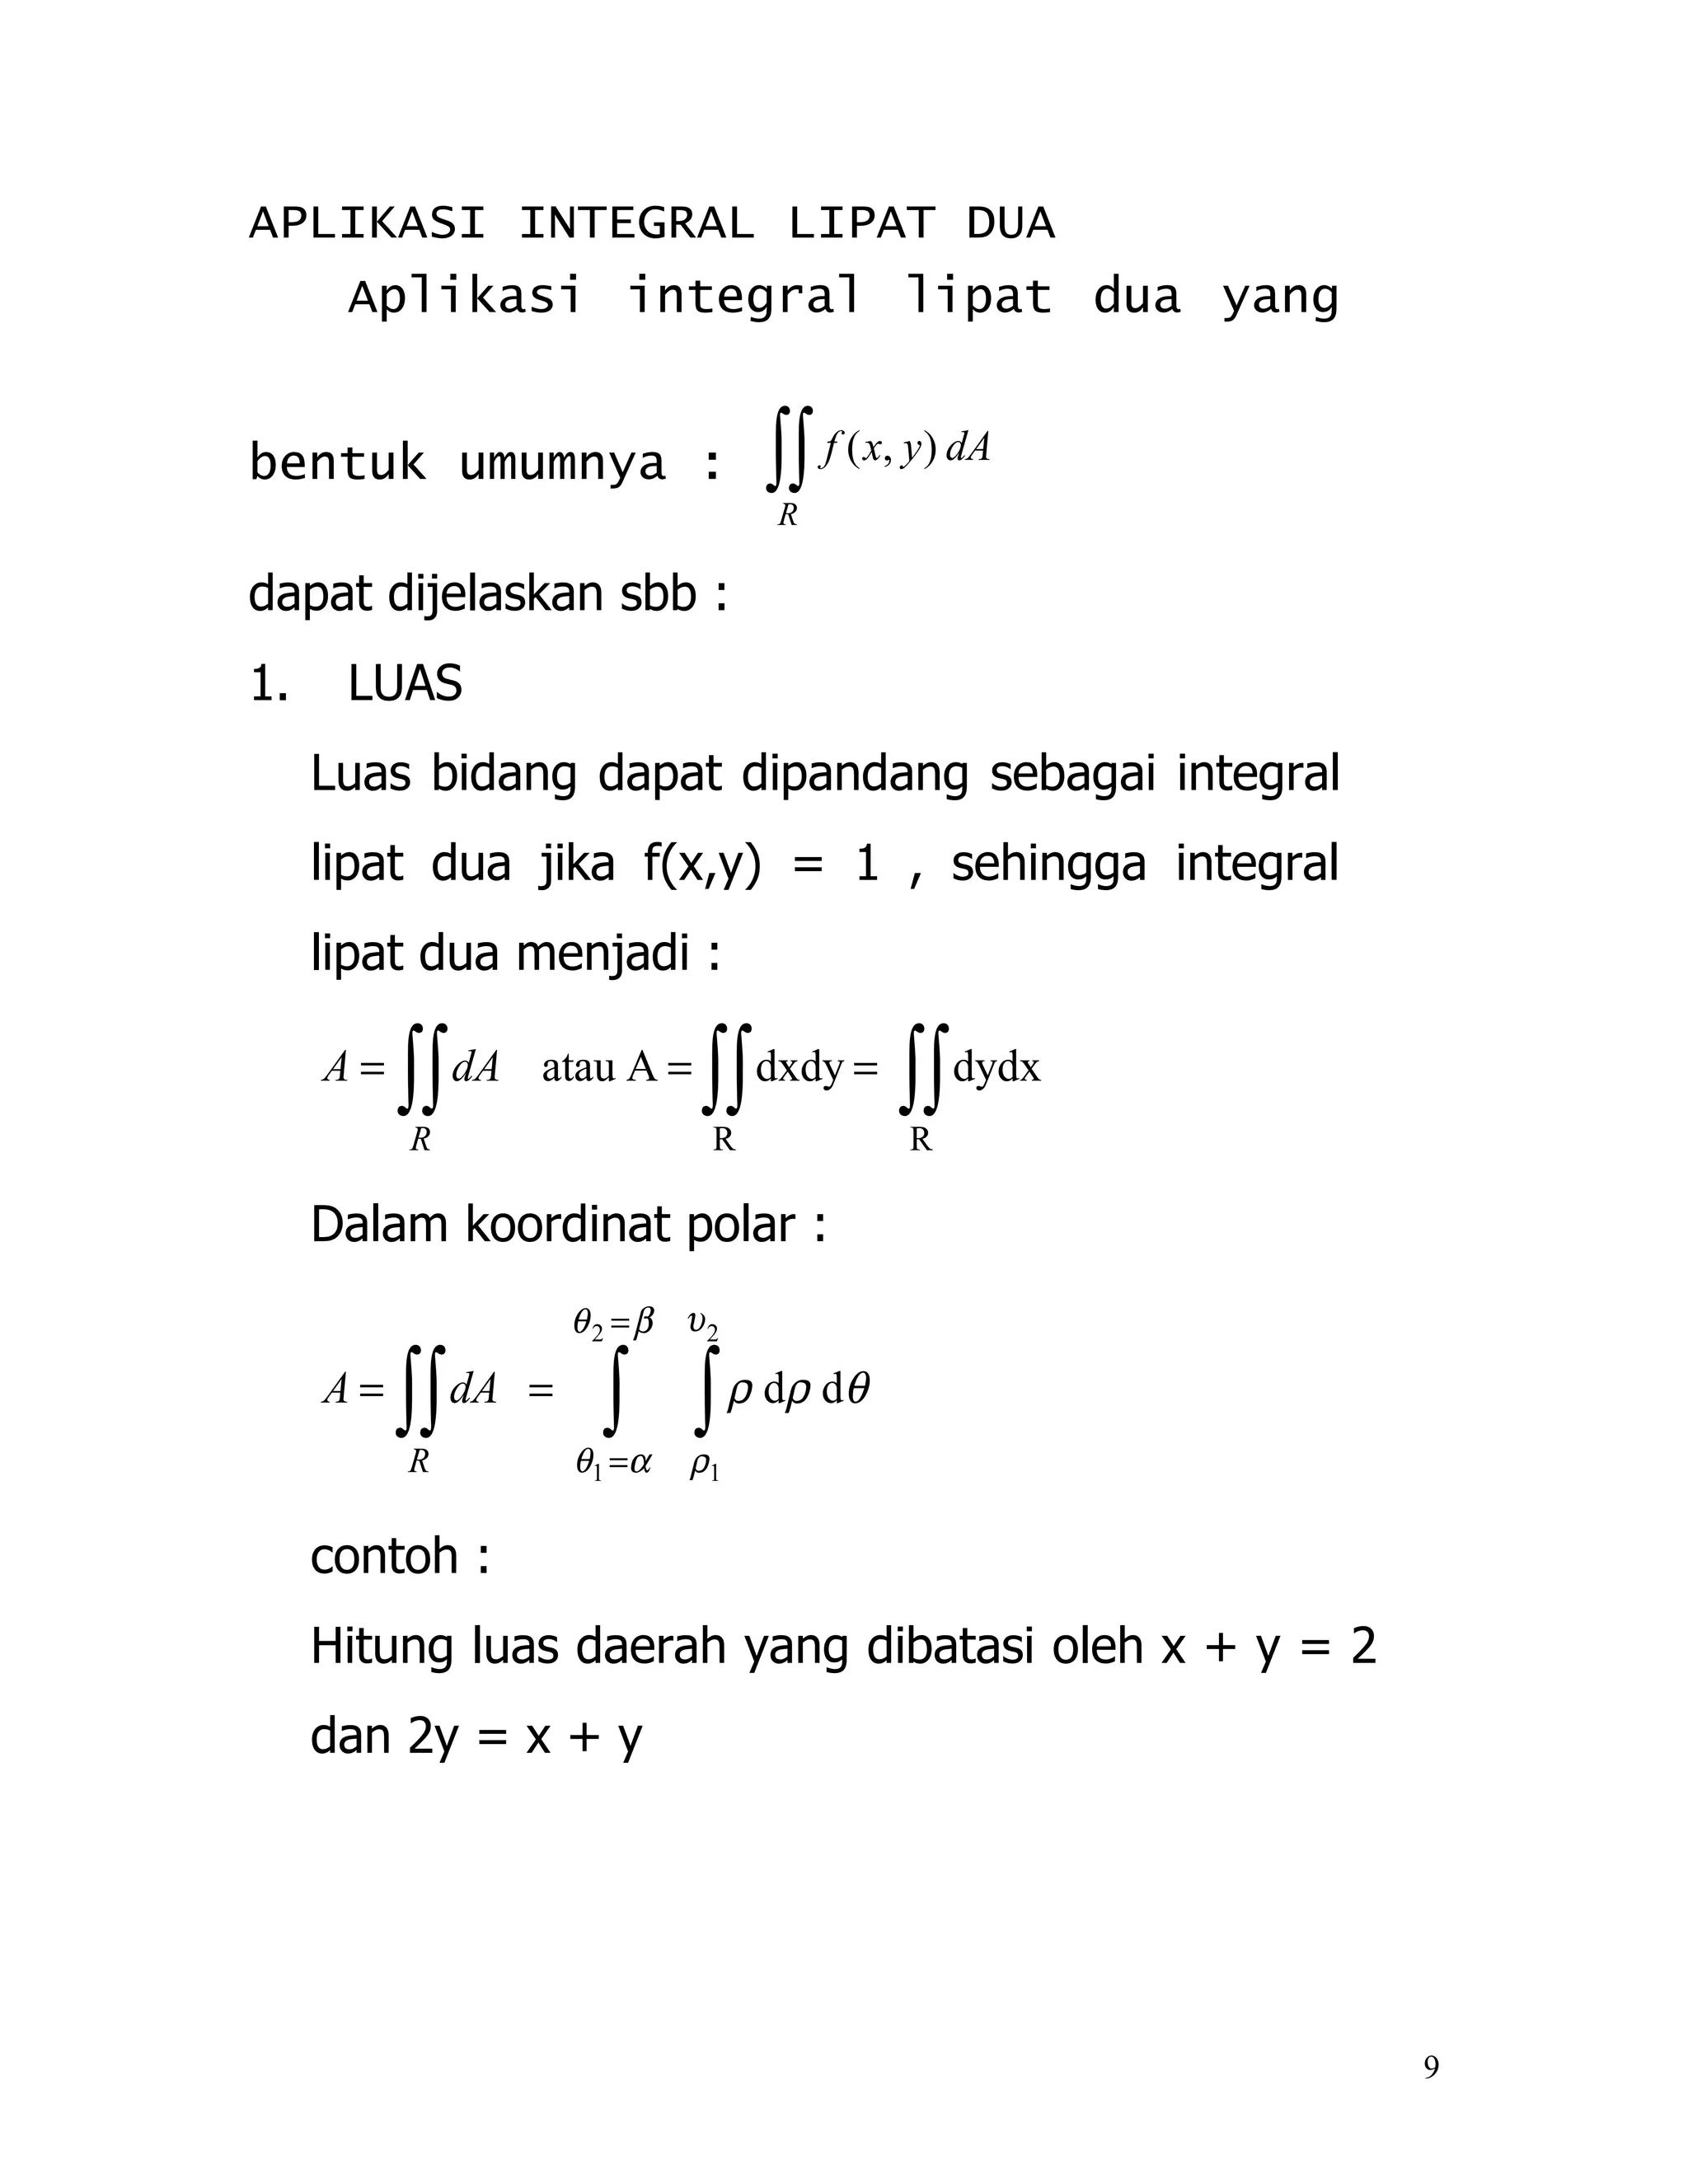 APLIKASI INTEGRAL LIPAT DUA
Aplikasi integral lipat dua yang
bentuk umumnya : ∬_R f(x, y) dA
dapat dijelaskan sbb :
1. LUAS
Luas bidang dapat dipandang sebagai integral
lipat dua jika f(x,y) = 1 , sehingga integral
lipat dua menjadi :
A = ∬_R dA atau A = ∬_R dxdy = ∬_R dydx
Dalam koordinat polar :
A = ∬_R dA = ∫_{θ₁=α}^{θ₂=β} ∫_{ρ₁}^{υ₂} ρ dρ dθ
contoh :
Hitung luas daerah yang dibatasi oleh x + y = 2
dan 2y = x + y
9